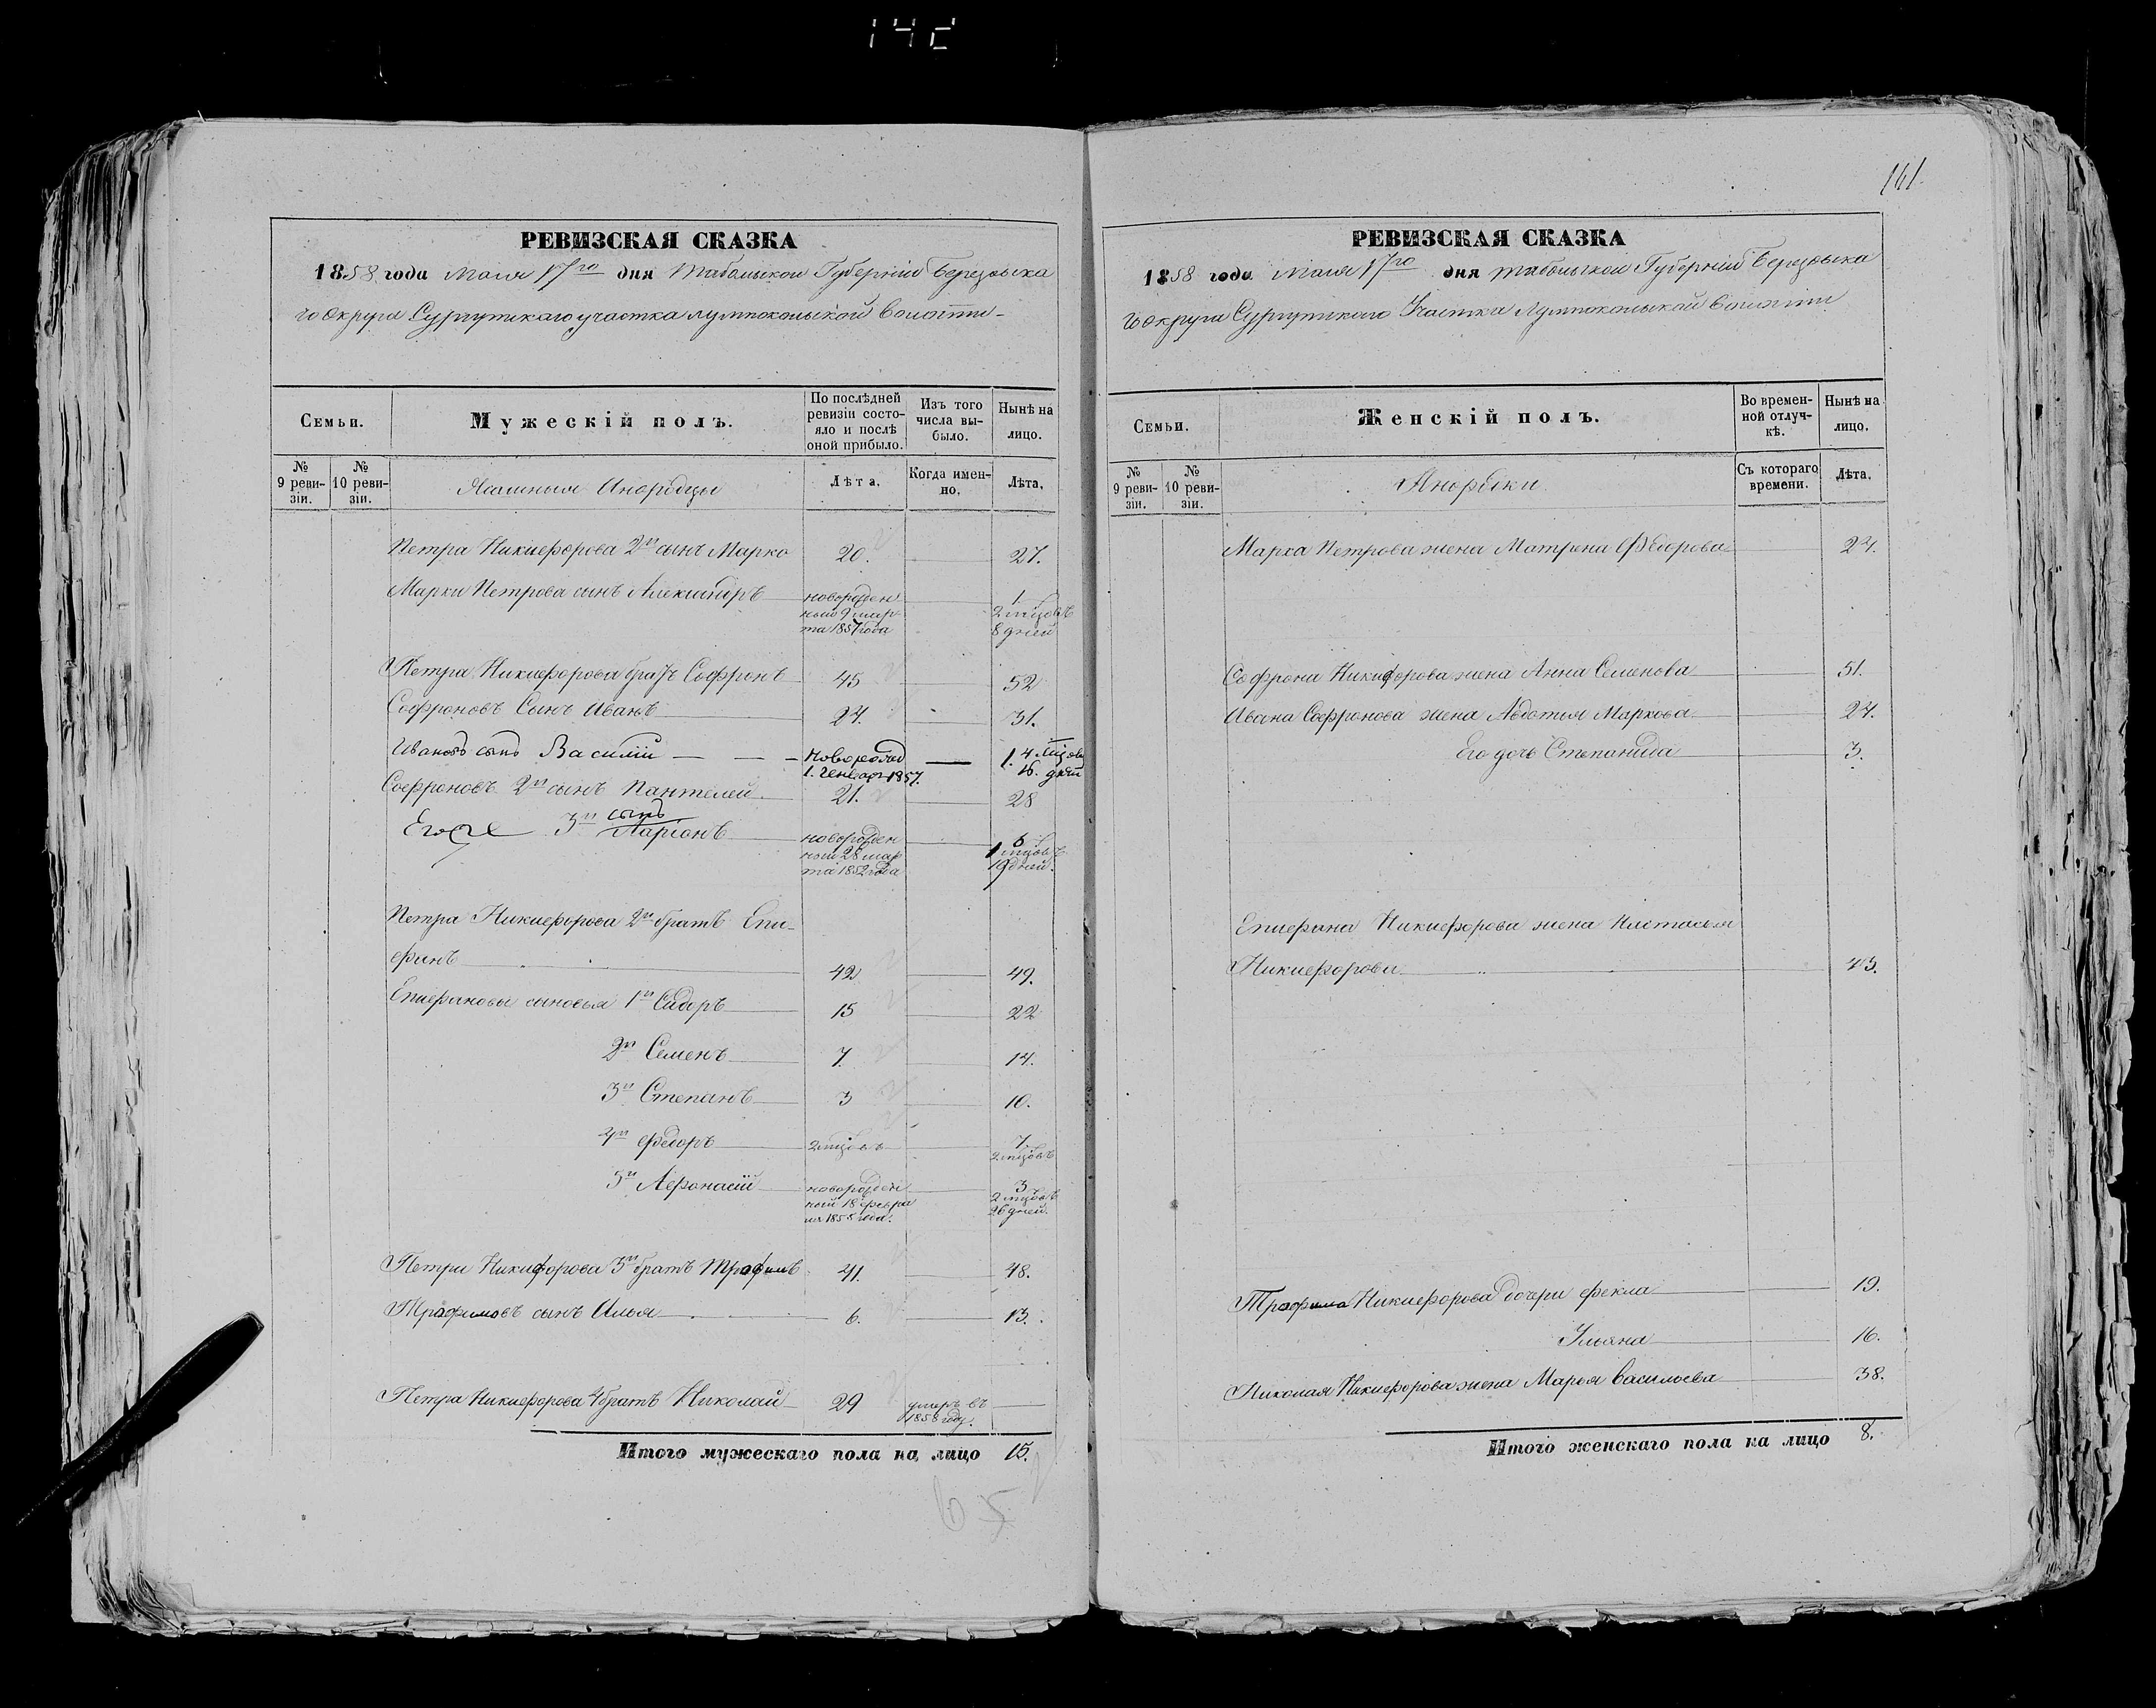 141.
РЕВИЗСКАЯ СКАЗКА
1858 года Маия 17го дня Табольской Губерніи Березовска
го округа Сургутскаго участка Лумпокольской волости
Семьи.
Мужескій полъ.
По послѣдней ревизіи состояло и послѣ оной прибыло.
Изъ того числа выбыло.
Нынѣ на лицо.
№ 9 ревизіи.
№ 10 ревизіи.
Ясашныя Инородцы
Лѣта.
Когда именно.
Лѣта.
Петра Никифорова 2й сынъ Марко 20. 27.
Марки Петрова сынъ Александръ новорожден 1.
ный 9 мар 2 мцовъ
та 1857 года 8 дней
Петра Никифорова братъ Софронъ 45 52
Софроновъ Сынъ Иванъ 24. 31.
Ивановъ сынъ Василій новорожд 1. 4. мцовъ
1. генвар 1857. 16. дней
Софроновъ 2й сынъ Пантелей 21. 28
Егоже 3й сынъ Ларіонъ новорожден 6
ный 28 мар 1 мцовъ
та 1852 года 19 дней.
Петра Никифорова 2й братъ Епи-
фанъ 42 49.
Епифановы сыновья 1й Сидоръ 15 22
2й Семенъ 7. 14.
3й Степанъ 3 10.
4й Федоръ 2 мцовъ 7.
2 мцовъ
5й Афонасій новорожден 3
ный 18 февра 2 мцовъ
ля 1855 года. 26 дней.
Петра Никифорова 3й братъ Трофимъ 41. 48.
Трофимовъ сынъ Илья 6. 13.
Петра Никифорова 4 братъ Николай 29 умеръ въ
1856 году.
Итого мужескаго пола на лицо 15.
РЕВИЗСКАЯ СКАЗКА
1858 года Маия 17го дня Табольской Губерніи Березовска
го округа Сургутскаго Участка Лумпокольской волости
Семьи.
Женскій полъ.
Во временной отлучкѣ.
Нынѣ на лицо.
№ 9 ревизіи.
№ 10 ревизіи.
Инородки
Съ котораго времени.
Лѣта.
Марка Петрова жена Матрена Федорова 24.
Софрона Никифорова жена Анна Семенова 51.
Ивана Софронова жена Авдотья Маркова 24.
Его дочь Степанида 3.
Епифана Никифорова жена Настасья
Никифорова 43.
Трофима Никифорова дочери Фекла 19.
Ульяна 16.
Николая Никифорова жена Марья Васильева 38.
Итого женскаго пола на лицо 8.